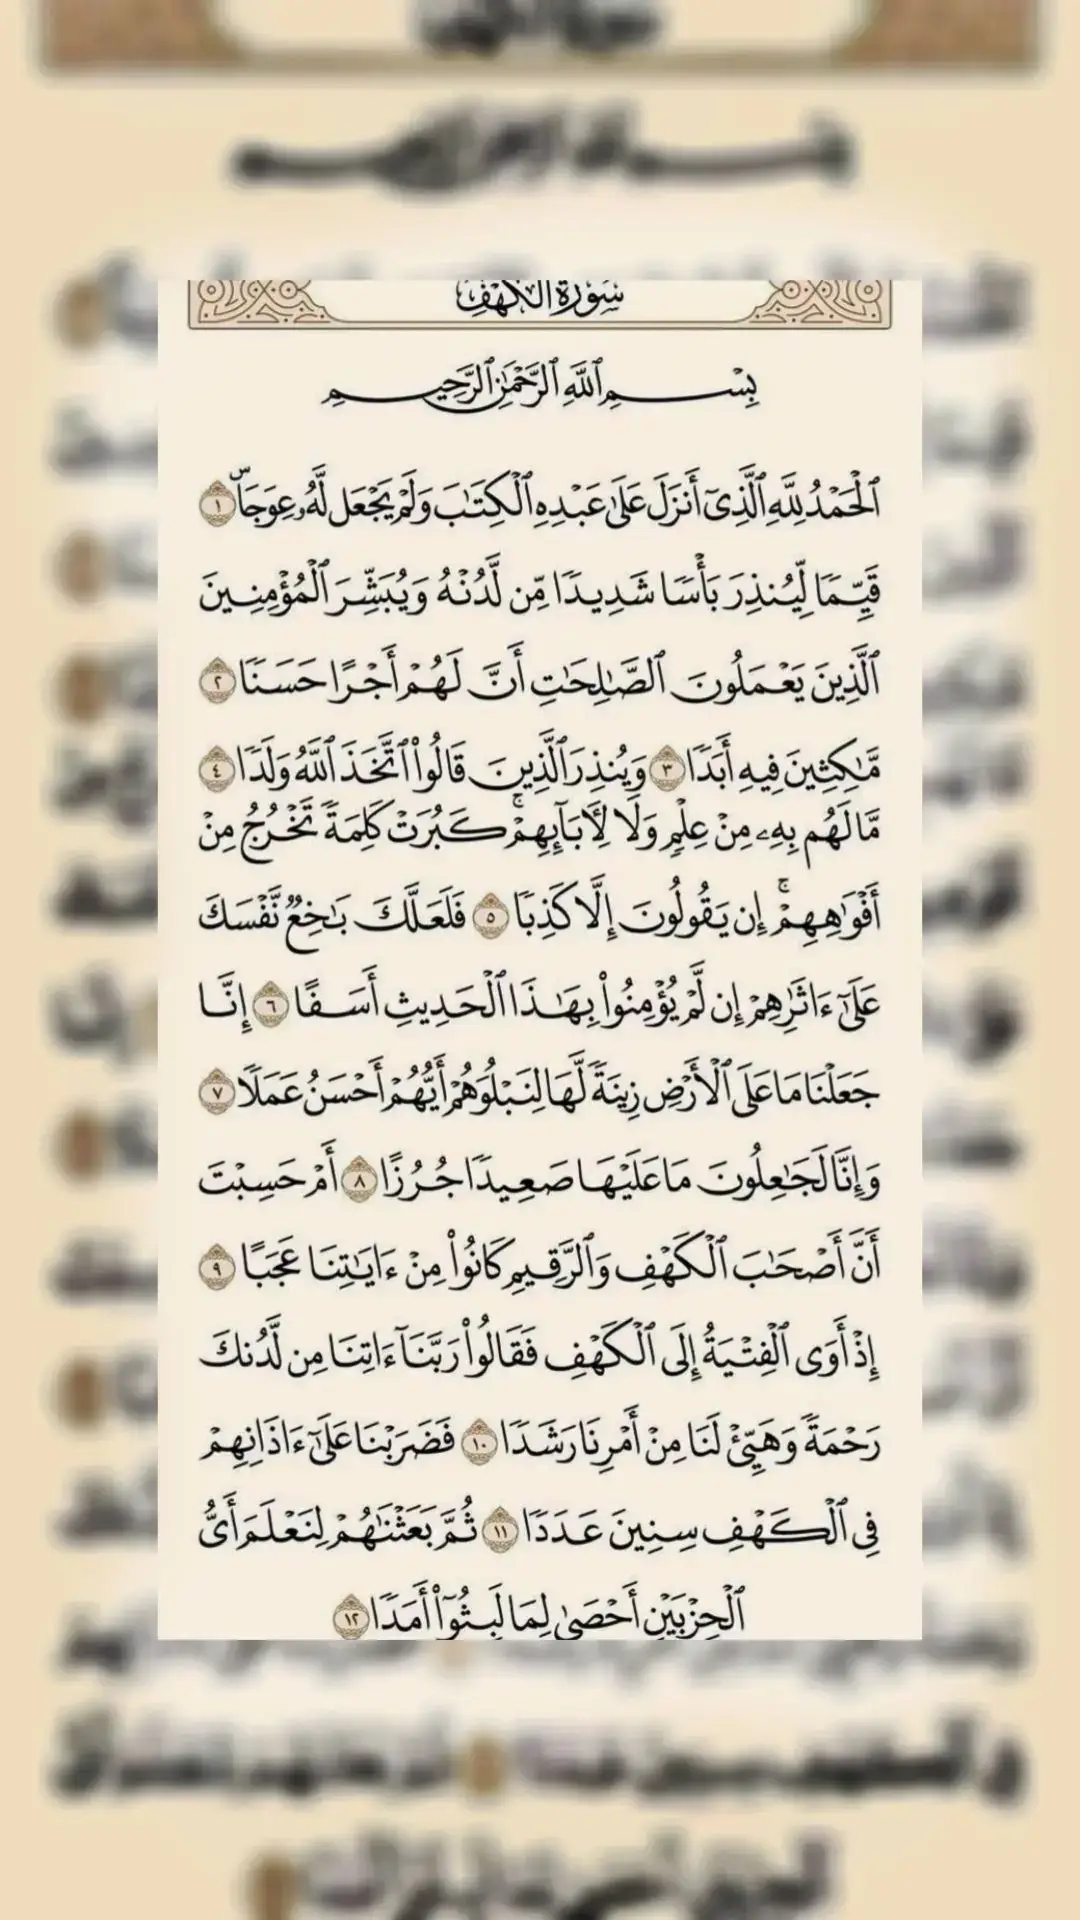 سُورَةُ الكَهْفِ
بِسْمِ ٱللَّهِ ٱلرَّحْمَٰنِ ٱلرَّحِيمِ
ٱلْحَمْدُ لِلَّهِ ٱلَّذِىٓ أَنزَلَ عَلَىٰ عَبْدِهِ ٱلْكِتَٰبَ وَلَمْ يَجْعَل لَّهُۥ عِوَجَاۜ ١
قَيِّمًا لِّيُنذِرَ بَأْسًا شَدِيدًا مِّن لَّدُنْهُ وَيُبَشِّرَ ٱلْمُؤْمِنِينَ
ٱلَّذِينَ يَعْمَلُونَ ٱلصَّٰلِحَٰتِ أَنَّ لَهُمْ أَجْرًا حَسَنًا ٢
مَّٰكِثِينَ فِيهِ أَبَدًا ٣ وَيُنذِرَ ٱلَّذِينَ قَالُوا۟ ٱتَّخَذَ ٱللَّهُ وَلَدًا ٤
مَّا لَهُم بِهِۦ مِنْ عِلْمٍ وَلَا لِأَبَآئِهِمْ ۚ كَبُرَتْ كَلِمَةً تَخْرُجُ مِنْ
أَفْوَٰهِهِمْ ۚ إِن يَقُولُونَ إِلَّا كَذِبًا ٥ فَلَعَلَّكَ بَٰخِعٌ نَّفْسَكَ
عَلَىٰٓ ءَاثَٰرِهِمْ إِن لَّمْ يُؤْمِنُوا۟ بِهَٰذَا ٱلْحَدِيثِ أَسَفًا ٦ إِنَّا
جَعَلْنَا مَا عَلَى ٱلْأَرْضِ زِينَةً لَّهَا لِنَبْلُوَهُمْ أَيُّهُمْ أَحْسَنُ عَمَلًا ٧
وَإِنَّا لَجَٰعِلُونَ مَا عَلَيْهَا صَعِيدًا جُرُزًا ٨ أَمْ حَسِبْتَ
أَنَّ أَصْحَٰبَ ٱلْكَهْفِ وَٱلرَّقِيمِ كَانُوا۟ مِنْ ءَايَٰتِنَا عَجَبًا ٩
إِذْ أَوَى ٱلْفِتْيَةُ إِلَى ٱلْكَهْفِ فَقَالُوا۟ رَبَّنَآ ءَاتِنَا مِن لَّدُنكَ
رَحْمَةً وَهَيِّئْ لَنَا مِنْ أَمْرِنَا رَشَدًا ١٠ فَضَرَبْنَا عَلَىٰٓ ءَاذَانِهِمْ
فِى ٱلْكَهْفِ سِنِينَ عَدَدًا ١١ ثُمَّ بَعَثْنَٰهُمْ لِنَعْلَمَ أَىُّ
ٱلْحِزْبَيْنِ أَحْصَىٰ لِمَا لَبِثُوٓا۟ أَمَدًا ١٢